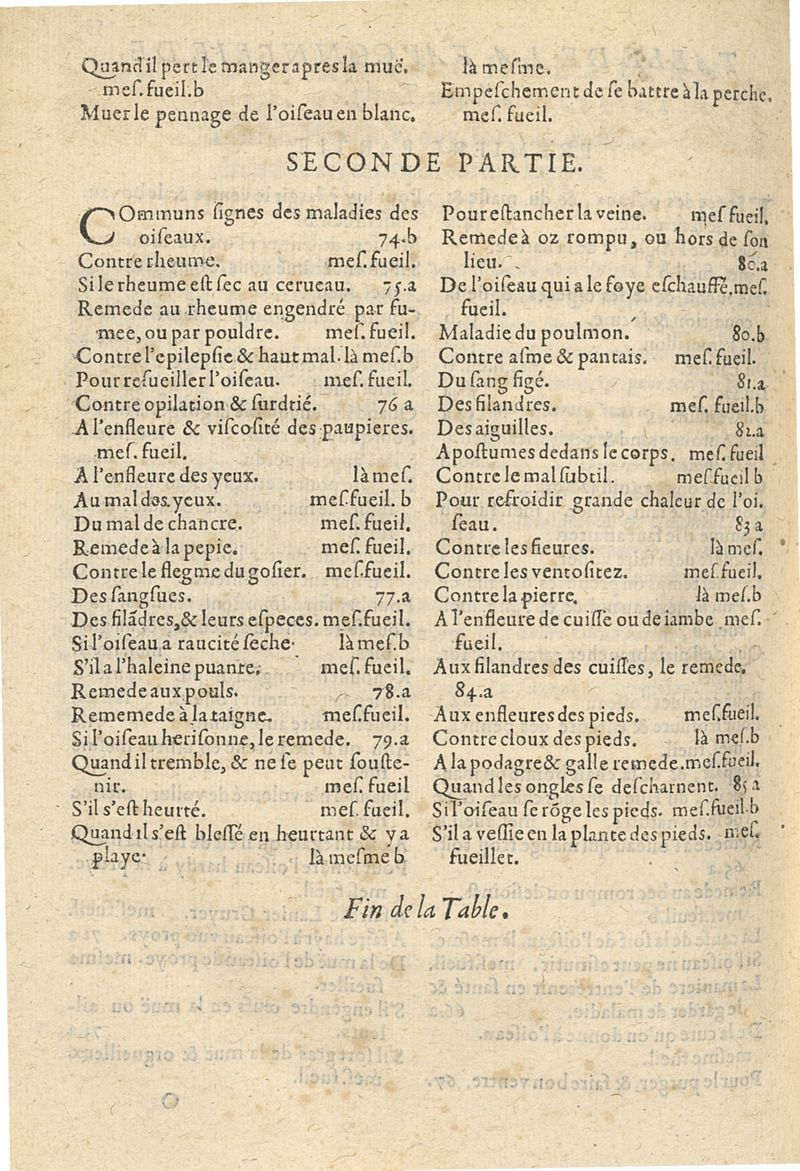 Quand il pert le manger apres la muë.
meſ. fueil.b
Muer le pennage de l'oiſeau en blanc.
là meſme.
Empeſchement de ſe battre à la perche.
meſ. fueil.
SECONDE PARTIE.
COmmuns ſignes des maladies des
oiſeaux. 74.b
Contre rheume. meſ. fueil.
Si le rheume eſt ſec au cerueau. 75.a
Remede au rheume engendré par fu-
mee, ou par pouldre. meſ. fueil.
Contre l'epilepſie & haut mal. là meſ.b
Pour reſueiller l'oiſeau. meſ. fueil.
Contre opilation & ſurdtié. 76 a
A l'enfleure & viſcoſité des paupieres.
meſ. fueil.
A l'enfleure des yeux. là meſ.
Au mal dos yeux. meſ.fueil. b
Du mal de chancre. meſ. fueil.
Remede à la pepie. meſ. fueil.
Contre le flegme du goſier. meſ.fueil.
Des ſangſues. 77.a
Des filãdres, & leurs eſpeces. meſ.fueil.
Si l'oiſeau a raucité ſeche. là meſ.b
S'il a l'haleine puante. meſ. fueil.
Remede aux pouls. 78.a
Rememede à la taigne. meſ.fueil.
Si l'oiſeau heriſonne, le remede. 79.a
Quand il tremble, & ne ſe peut ſouſte-
nir. meſ. fueil
S'il s'eſt heurté. meſ. fueil.
Quand il s'eſt bleſſé en heurtant & y a
playe. là meſme b
Pour eſtancher la veine. meſ fueil.
Remede à oz rompu, ou hors de ſon
lieu. 80.a
De l'oiſeau qui a le foye eſchauffé.meſ.
fueil.
Maladie du poulmon. 80.b
Contre aſme & pantais. meſ. fueil.
Du ſang figé. 81.a
Des filandres. meſ. fueil.b
Des aiguilles. 82.a
Apoſtumes dedans le corps. meſ. fueil
Contre le mal ſubtil. meſ fueil b
Pour refroidir grande chaleur de l'oi.
ſeau. 83 a
Contre les fieures. là meſ.
Contre les ventoſitez. meſ.fueil.
Contre la pierre. là meſ.b
A l'enfleure de cuiſſe ou de iambe meſ.
fueil.
Aux filandres des cuiſſes, le remede.
84.a
Aux enfleures des pieds. meſ.fueil.
Contre cloux des pieds. là meſ.b
A la podagre & galle remede.meſ.fueil.
Quand les ongles ſe deſcharnent. 85 a
Si l'oiſeau ſe rõge les pieds. meſ.fueil.b
S'il a veſſie en la plante des pieds. meſ.
fueillet.
Fin de la Table.